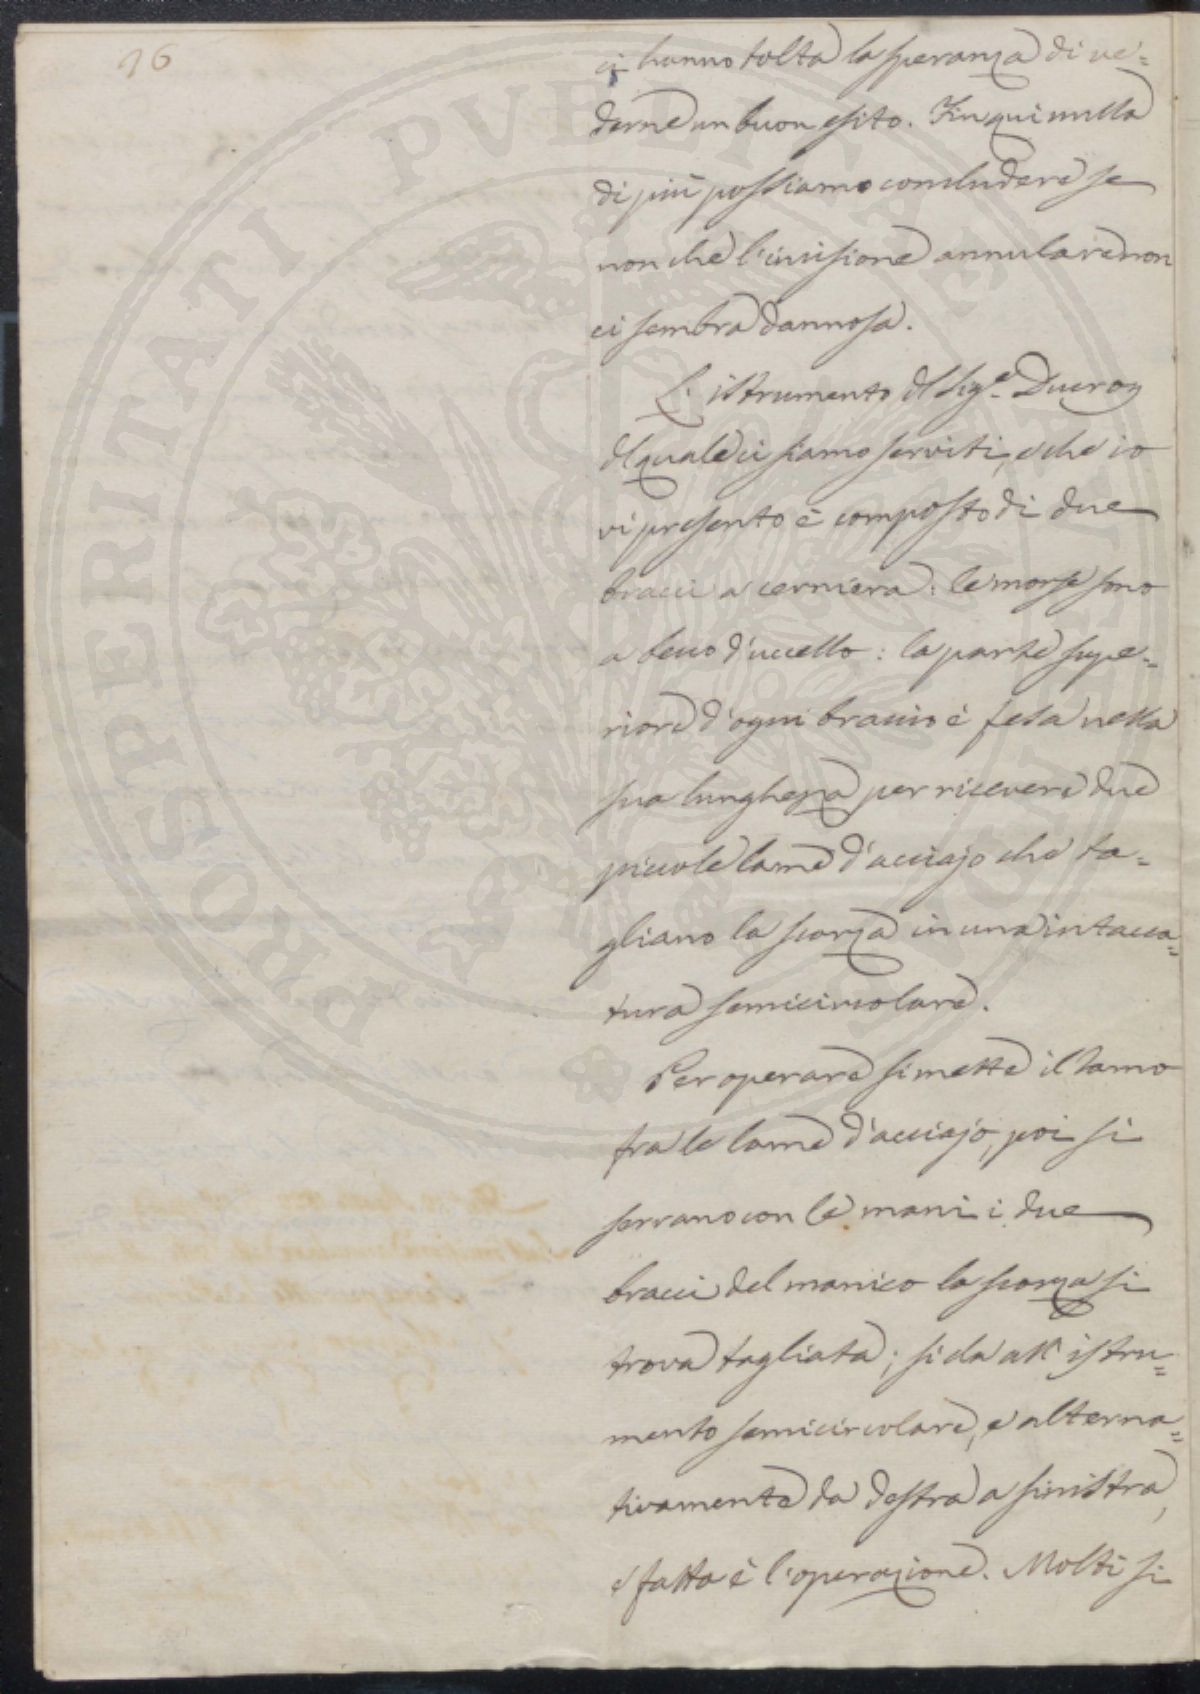 16
ci hanno tolta la speranza di ve=
derne un buon esito. Fin qui nulla
di più possiamo concludere se
non che l'incisione annulare non
ci sembra dannosa.
L'istrumento del Sig.e Ducroy
del quale ci siamo serviti, e che io
vi presento è composto di due
bracci a cerniera: le morse sono
a becco d'uccello: la parte supe=
riore d'ogni braccio è fesa nella
sua lunghezza per ricevere due
piccole lame d'acciajo che ta=
gliano la scorza in una intacca=
tura semicircolare.
Per operare si mette il ramo
fra le lame d'acciajo, poi si
serrano con le mani i due
bracci del manico la scorza si
trova tagliata; si da all'istru=
mento semicircolare, e alterna=
tivamente da destra a sinistra,
e fatta è l'operazione. Molti si
PROSPERITATI PVBLICAE